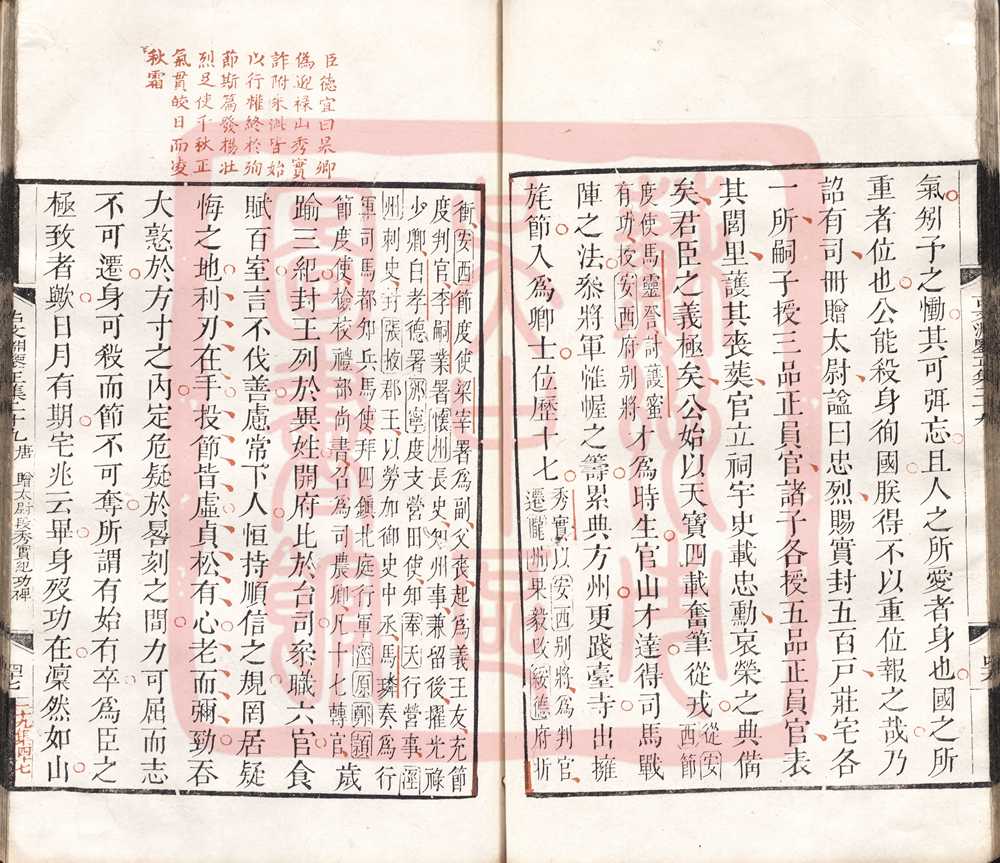 氣矧予之慟其可弭忘且人之所愛者身也國之所
重者位也公能殺身徇國朕得不以重位報之哉乃
詔有司冊贈太尉諡曰忠烈賜實封五百戸莊宅各
一所嗣子授三品正員官諸子各授五品正員官表
其閭里護其喪葬官立祠宇史載忠勳哀榮之典備
矣君臣之義極矣公始以天寶四載奮筆從戎從安西節
度使馬靈詧討護蜜
有功授安西府别將
才為時生官山才達得司馬戰
陣之法叅將軍惟幄之籌累典方州更踐臺寺出擁
旄節入爲卿士位歷十七
秀實以安西别將爲判官
遷隴州果毅改綏德府折
衝安西節度使梁宰署爲副父喪起爲義王友充節
度判官李嗣業署懷州長史知州事兼留後擢光祿
少卿白孝德署邠寧度支營田使知奉天行營事涇
州刺史封張掖郡王以勞加御史中丞馬璘奏爲行
軍司馬都知兵馬使拜四鎮北庭行軍涇原鄭潁
節度使檢校禮部尚書召爲司農卿凡十七轉官
歲
踰三紀封王列於異姓開府比於台司叅職六官食
賦百室言不伐善慮常下人恒持順信之規罔居疑
悔之地利刃在手投節昔虛貞松有心老而彌勁吞
大憝於方寸之内定危疑於晷刻之間力可屈而志
不可遷身可殺而節不可奪所謂有始有卒爲臣之
極致者歟日月有期宅兆云畢身歿功在凜然如山
臣德宜曰杲卿
偽迎祿山秀實
詐附朱泚皆始
以行權終於殉
節斯篇發楊壯
烈足使千秋正
氣貫皎日而凌
秋霜
唐 贈太尉段秀實紀功碑